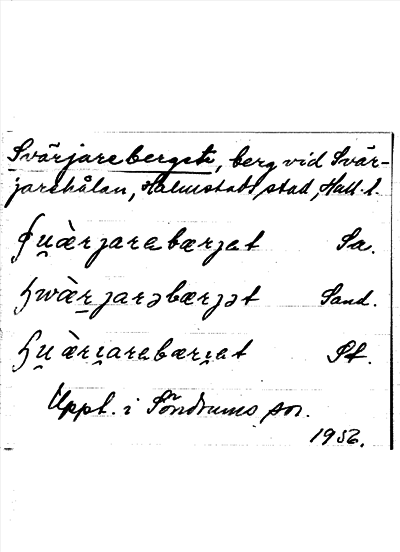 Svärjareberget, berg vid Svär-
jarehålan, Halmstads stad, Hall. l.
ɧu̯ærjarebærjet Sa.
ɧwæ̀rjarəbærjət Sand.
ɧu̯æ̀ri̯arebæri̯et St.
Uppt. i Söndrums sn.
1956.